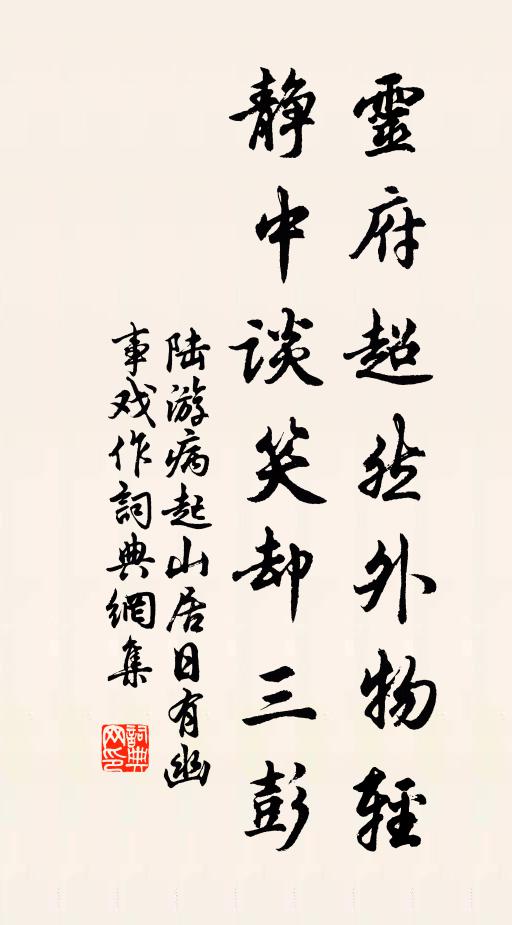 靈府超然外物輕
靜中談笑却三彭
陆游病起山居日有幽
事戏作詞典網集
詞典
网印